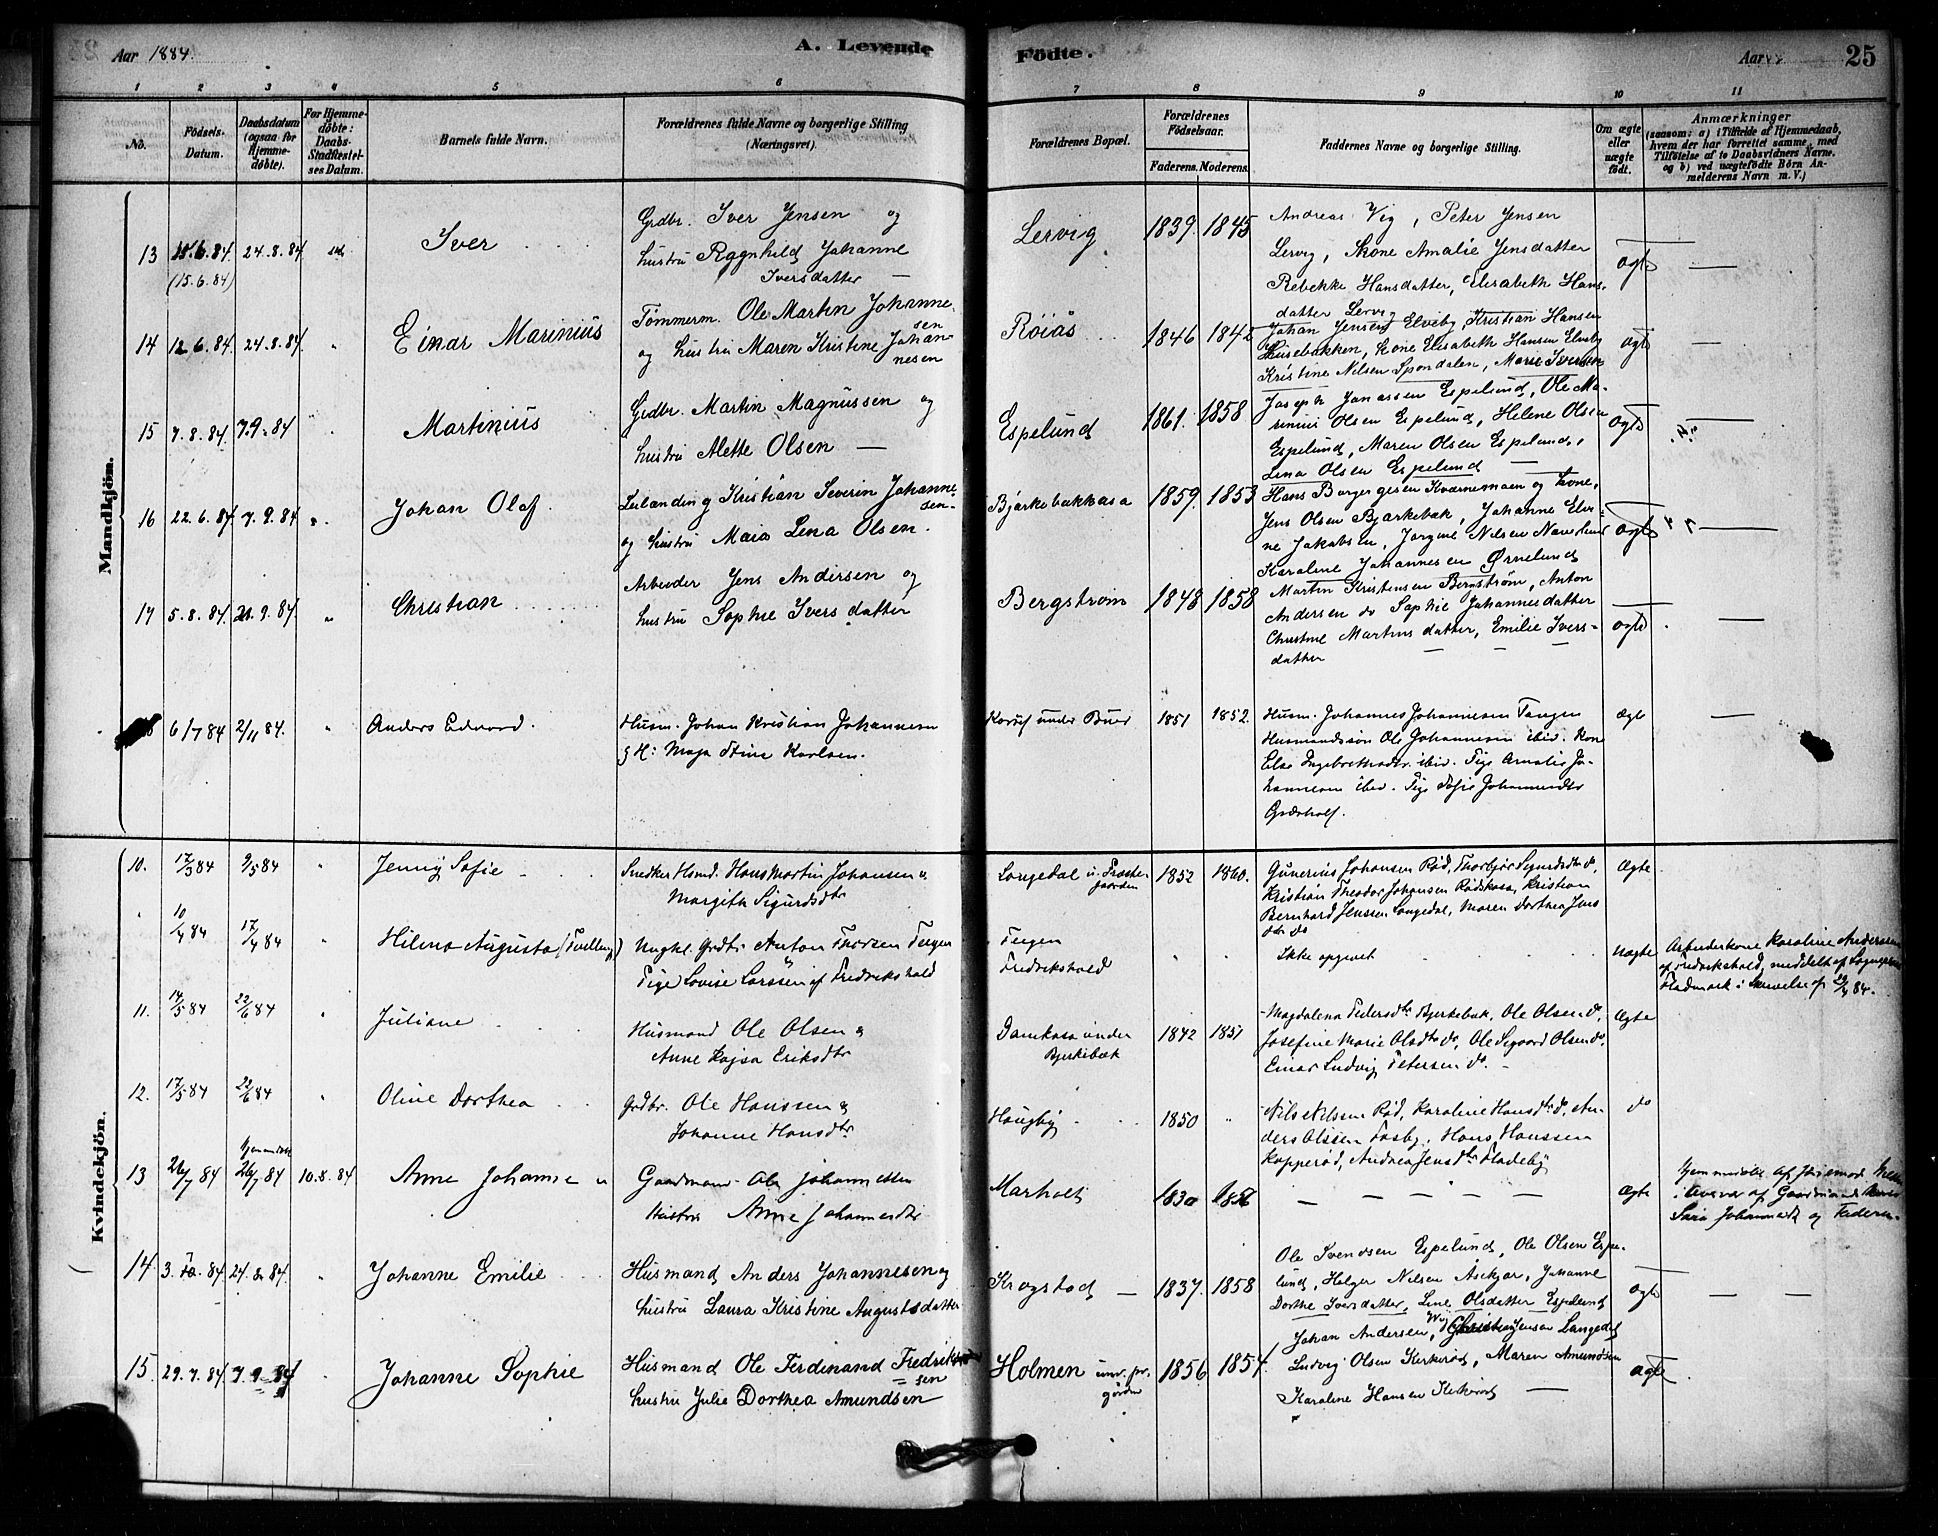 Aar 1884.
A. Levende
Födte.
Aar
25
1 2 3 4 5 6 7 8 9 10 11
No.
Födsels-
Datum.
Daabsdatum
(ogsaa for
Hjemme-
döbte).
For Hjemme-
döbte:
Daabs-
Stadfæstel-
ses Datum.
Barnets fulde Navn.
Forældrenes fulde Navne og borgerlige Stilling
(Næringsvei).
Forældrenes Bopæl.
Forældrenes
Födselsaar.
Faderens. Moderens.
Faddernes Navne og borgerlige Stilling.
Om ægte
eller
uægte
födt.
Anmærkninger
(saasom: a) i Tilfælde af Hjemmedaab,
hvem der har forrettet samme, med
Tilföielse af to Daabsvidners Navne,
og b) ved uægtefödte Börn An-
melderens Navn m. V.)
Mandkjön.
13 15.6.84. 24.8.84
(15.6.84)
Iver
Grdbr. Iver Jensen og
hustru Ragnhild Johanne
Iversdatter —
Lervig 1839. 1845
Andreas Vig, Peter Jensen
Lervig, Kone Amalie Jensdatter
Rebekke Hansdatter, Elisabeth Hans-
datter Lervig
Ægte —
14 12.6.84 24.8.84. "
Einar Marinius
Tømmerm. Ole Martin Johanne-
sen
og hustru Maren Kristine Johan-
nesen
Røiås 1846 1842
Johan Jensen Elveby, Kristian Hansen
Husebakken, Kone Elisabeth Hansen Elveby
Kristine Nilsen Spondalen, Marie Iversen
Ægte —
15 7.8.84. 7.9.84
Martinius
Grdbr. Martin Magnussen og
hustru Alette Olsen —
Espelund 1861. 1858
Joseph Jonassen Espelund, Ole Ma-
rinius Olsen Espelund, Helene Olsen
Espelund, Maren Olsen Espelund,
Lina Olsen Espelund —
Ægte —
16 22.6.84 7.9.84 "
Johan Olaf.
Leilænding Kristian Severin Johanne-
sen
og hustru Maia Lena Olsen.
Bjørkebakkasa 1859. 1853
Hans Borgergesen Kværnemoen og Kone,
Jens Olsen Bjærkebæk, Johanne Elvi-
ne Jakobsen, Jørgine Nilsen
Karoline Johannesen Ørnelund
Ægte —
17 5.8.84. 21.9.84. "
Christian
Arbeider Jens Andersen og
hustru Sophie Iversdatter
Bergstrøm 1848 1858
Martin Kristensen Bergstrøm, Anton
Andersen do Sophie Johannesdatter
Christine Martinsdatter, Emilie Ivers-
datter — — —
Ægte . —
18 6/7 84 2/11 84. "
Anders Edvard.
Husm. Johan Kristian Johannesen
& H: Maja Stine Karlsen.
under Buer 1851 1852.
Husm. Johannes Johannesen Tangen
Husmandssøn Ole Johannesen ibid. Kone
Else Ingebretsdatr. ibid. Pige Amalie Jo-
hannesen ibid. Pige Sofie Johannesdtr
Græsholt.
Ægte —
Kvindekjön.
10. 12/3 84 9/5 84 "
Jenny Sofie
Snedker Hsmd. Hans Martin Johansen &
Margith Sigurdsdtr
Langedal u. Præste-
gaarden 1852 1860.
Gunerius Johansen Rød, Thorbjør Sigurdsdtr do,
Kristian Theodor Johansen Rødskasa, Kristian
Bernhard Jensen Langedal, Maren Dorthea Jens
dtr do
Ægte
10/4 84 17/4 84 "
Hilena Augusta (Tvilling)
Ungkl. Grdbr. Anton Thorsen Tangen
Pige Lovise Larssen af Fredrikshald
Tangen
Fredrikshald
Ikke opgivet
Uægte
Arbeiderkone Karoline Andersen
af Fredrikshald, meddelt af Sognepræst
Fladmark i Skrivelse af 22/4 84.
11. 14/5 84 22/6 84 "
Juliane
Husmand Ole Olsen &
Anne Kajsa Eriksdtr
Damkasa under
Bjerkebæk 1842 1851
Magdalena Pedersdtr Bjerkebæk, Ole Olsen do,
Josefine Marie Olsdtr do, Ole Segaard Olsen do,
Einar Ludvig Petersen do. —
Ægte
12. 17/5 84 22/6 84 "
Oline Dorthea
Grdbr. Ole Hanssen &
Johanne Hansdtr
Haugby 1850 "
Nils Nilsen Rød, Karoline Hansdtr do, An-
ders Olssen Fosby, Hans Hanssen
Kopperød, Andrea Jensdtr Fladeby
do
13 26/7 84 Hjemmedøbt 26/7 84 10.8.84
Anne Johanne
Gaardmand Ole Johannessen
Hustru Anne Johannesdtr
Marholt 1830 1856
— — — — —
Ægte
Hjemmedøbt af
i Overvær af Gaardmands
Sara Johannesdt og Faderen
14 3. 7. 84 24.8.84. "
Johanne Emilie
Husmand Anders Johannesen og
hustru Laura Kristine Augustsdatter
Krogstad — 1837. 1858
Ole Svendsen Espelund, Ole Olsen Espe-
lund, Helger Nilsen Åsekjær, Johanne
Dorthe Iversdatter, Line Olsdatter Espelund
Ægte — —
15 29.7.84 7.9.84
Johanne Sophie
Husmand Ole Ferdinand Fredrik-
sen
hustru Julie Dorthea Amundsen
Holmen und. pr.
gården 1856 1854.
Johan Andersen, Wig Jensen Langedal
Ludvig Olsen Kirkerød, Maren Amundsen
Karoline Hansen Kirkerød —
Ægte